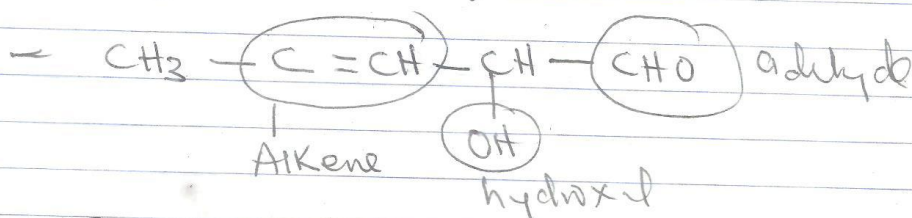 - CH3 - C = CH - CH - CHO adehyde
OH
Alkene
hydroxyl